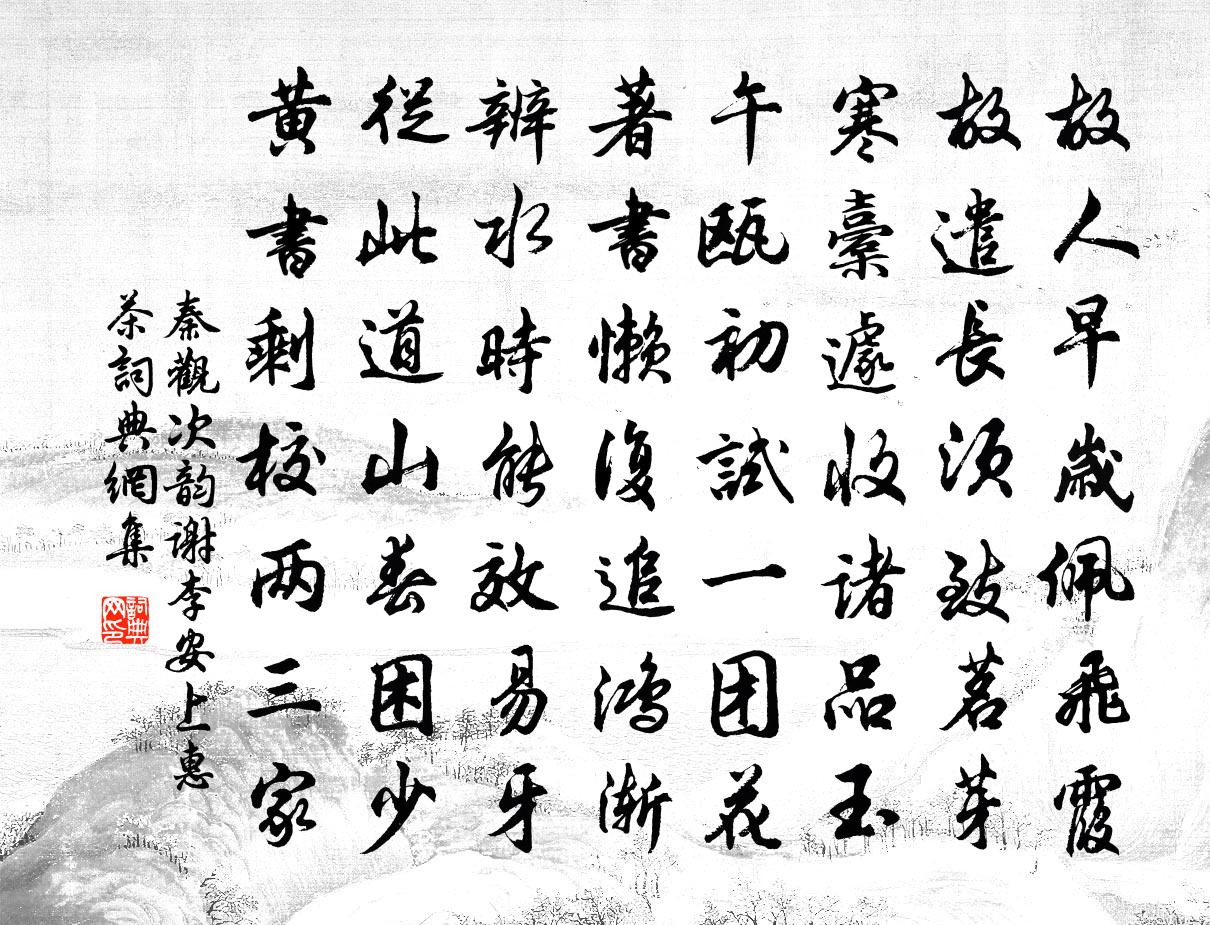 故人早歲佩飛霞
故遣長須致茗芽
寒橐遽收諸品玉
午甌初試一团花
著書懶復追鴻漸
辨水時能效易牙
從此道山春困少
黃書剩校两三家
秦觀次韵谢李安上惠
茶詞典網集
詞典网印